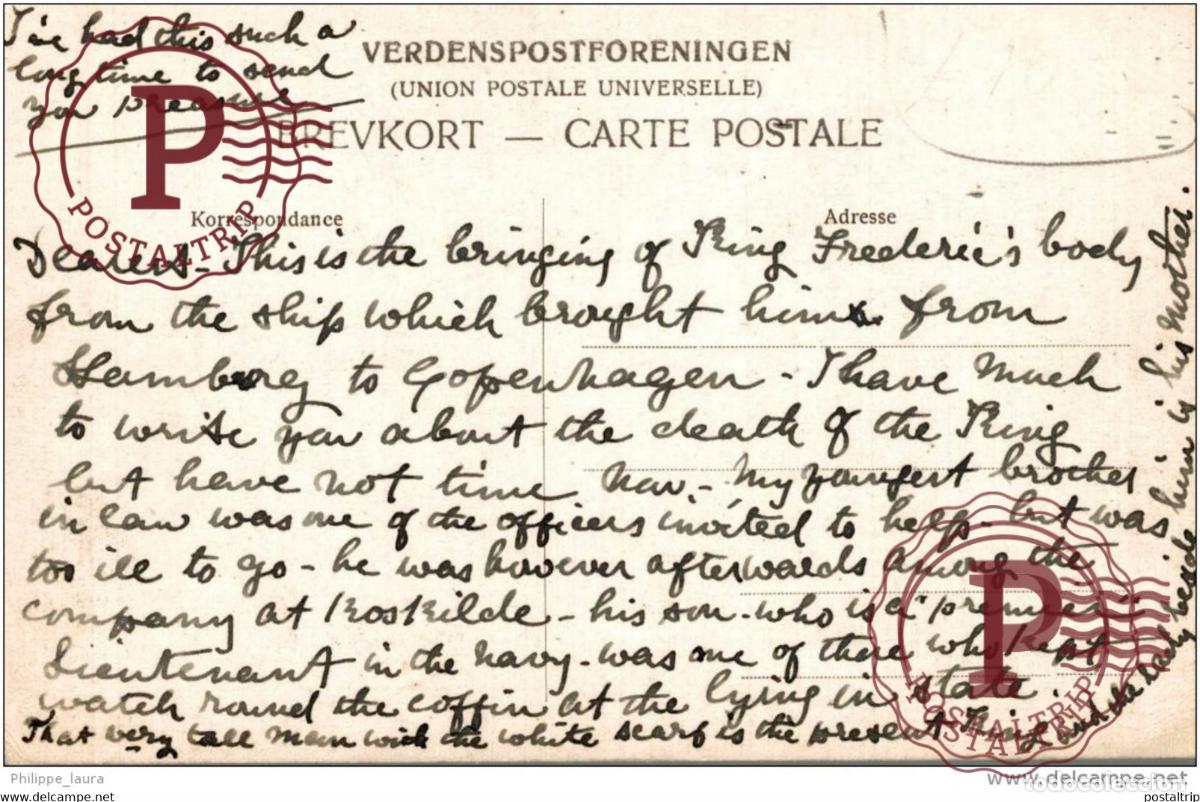 I've had this such a
long time to send
you
VERDENSPOSTFORENINGEN
(UNION POSTALE UNIVERSELLE)
BREVKORT — CARTE POSTALE
Korrespondance
Adresse
Dearest - This is the bringing of King Frederic's body
from the ship which brought him from
Hamburg to Copenhagen - I have much
to write you about the death of the King
but have not time now. - My youngest brother
in law was one of the officers invited to help - but was
too ill to go - he was however afterwards among the
company at Roskilde - his son - who is a "premier"
Lieutenant in the navy - was one of those who kept
watch round the coffin at the lying in state.
That very tall man with the white scarf is the present King
and the lady beside him is his mother.
P
POSTALTRIP
P
POSTALTRIP
Philippe_laura
www.delcampe.net
todocoleccion
www.delcampe.net
postaltrip